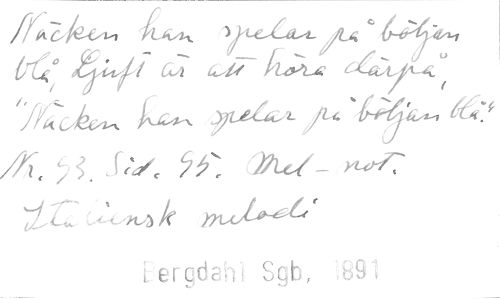 Näcken han spelar på böljan
blå, Ljuft är att höra därpå,
"Näcken han spelar på böljan blå."
Nr. 93. Sid. 95. Mel-not.
Italiensk melodi
Bergdahl Sgb, 1891